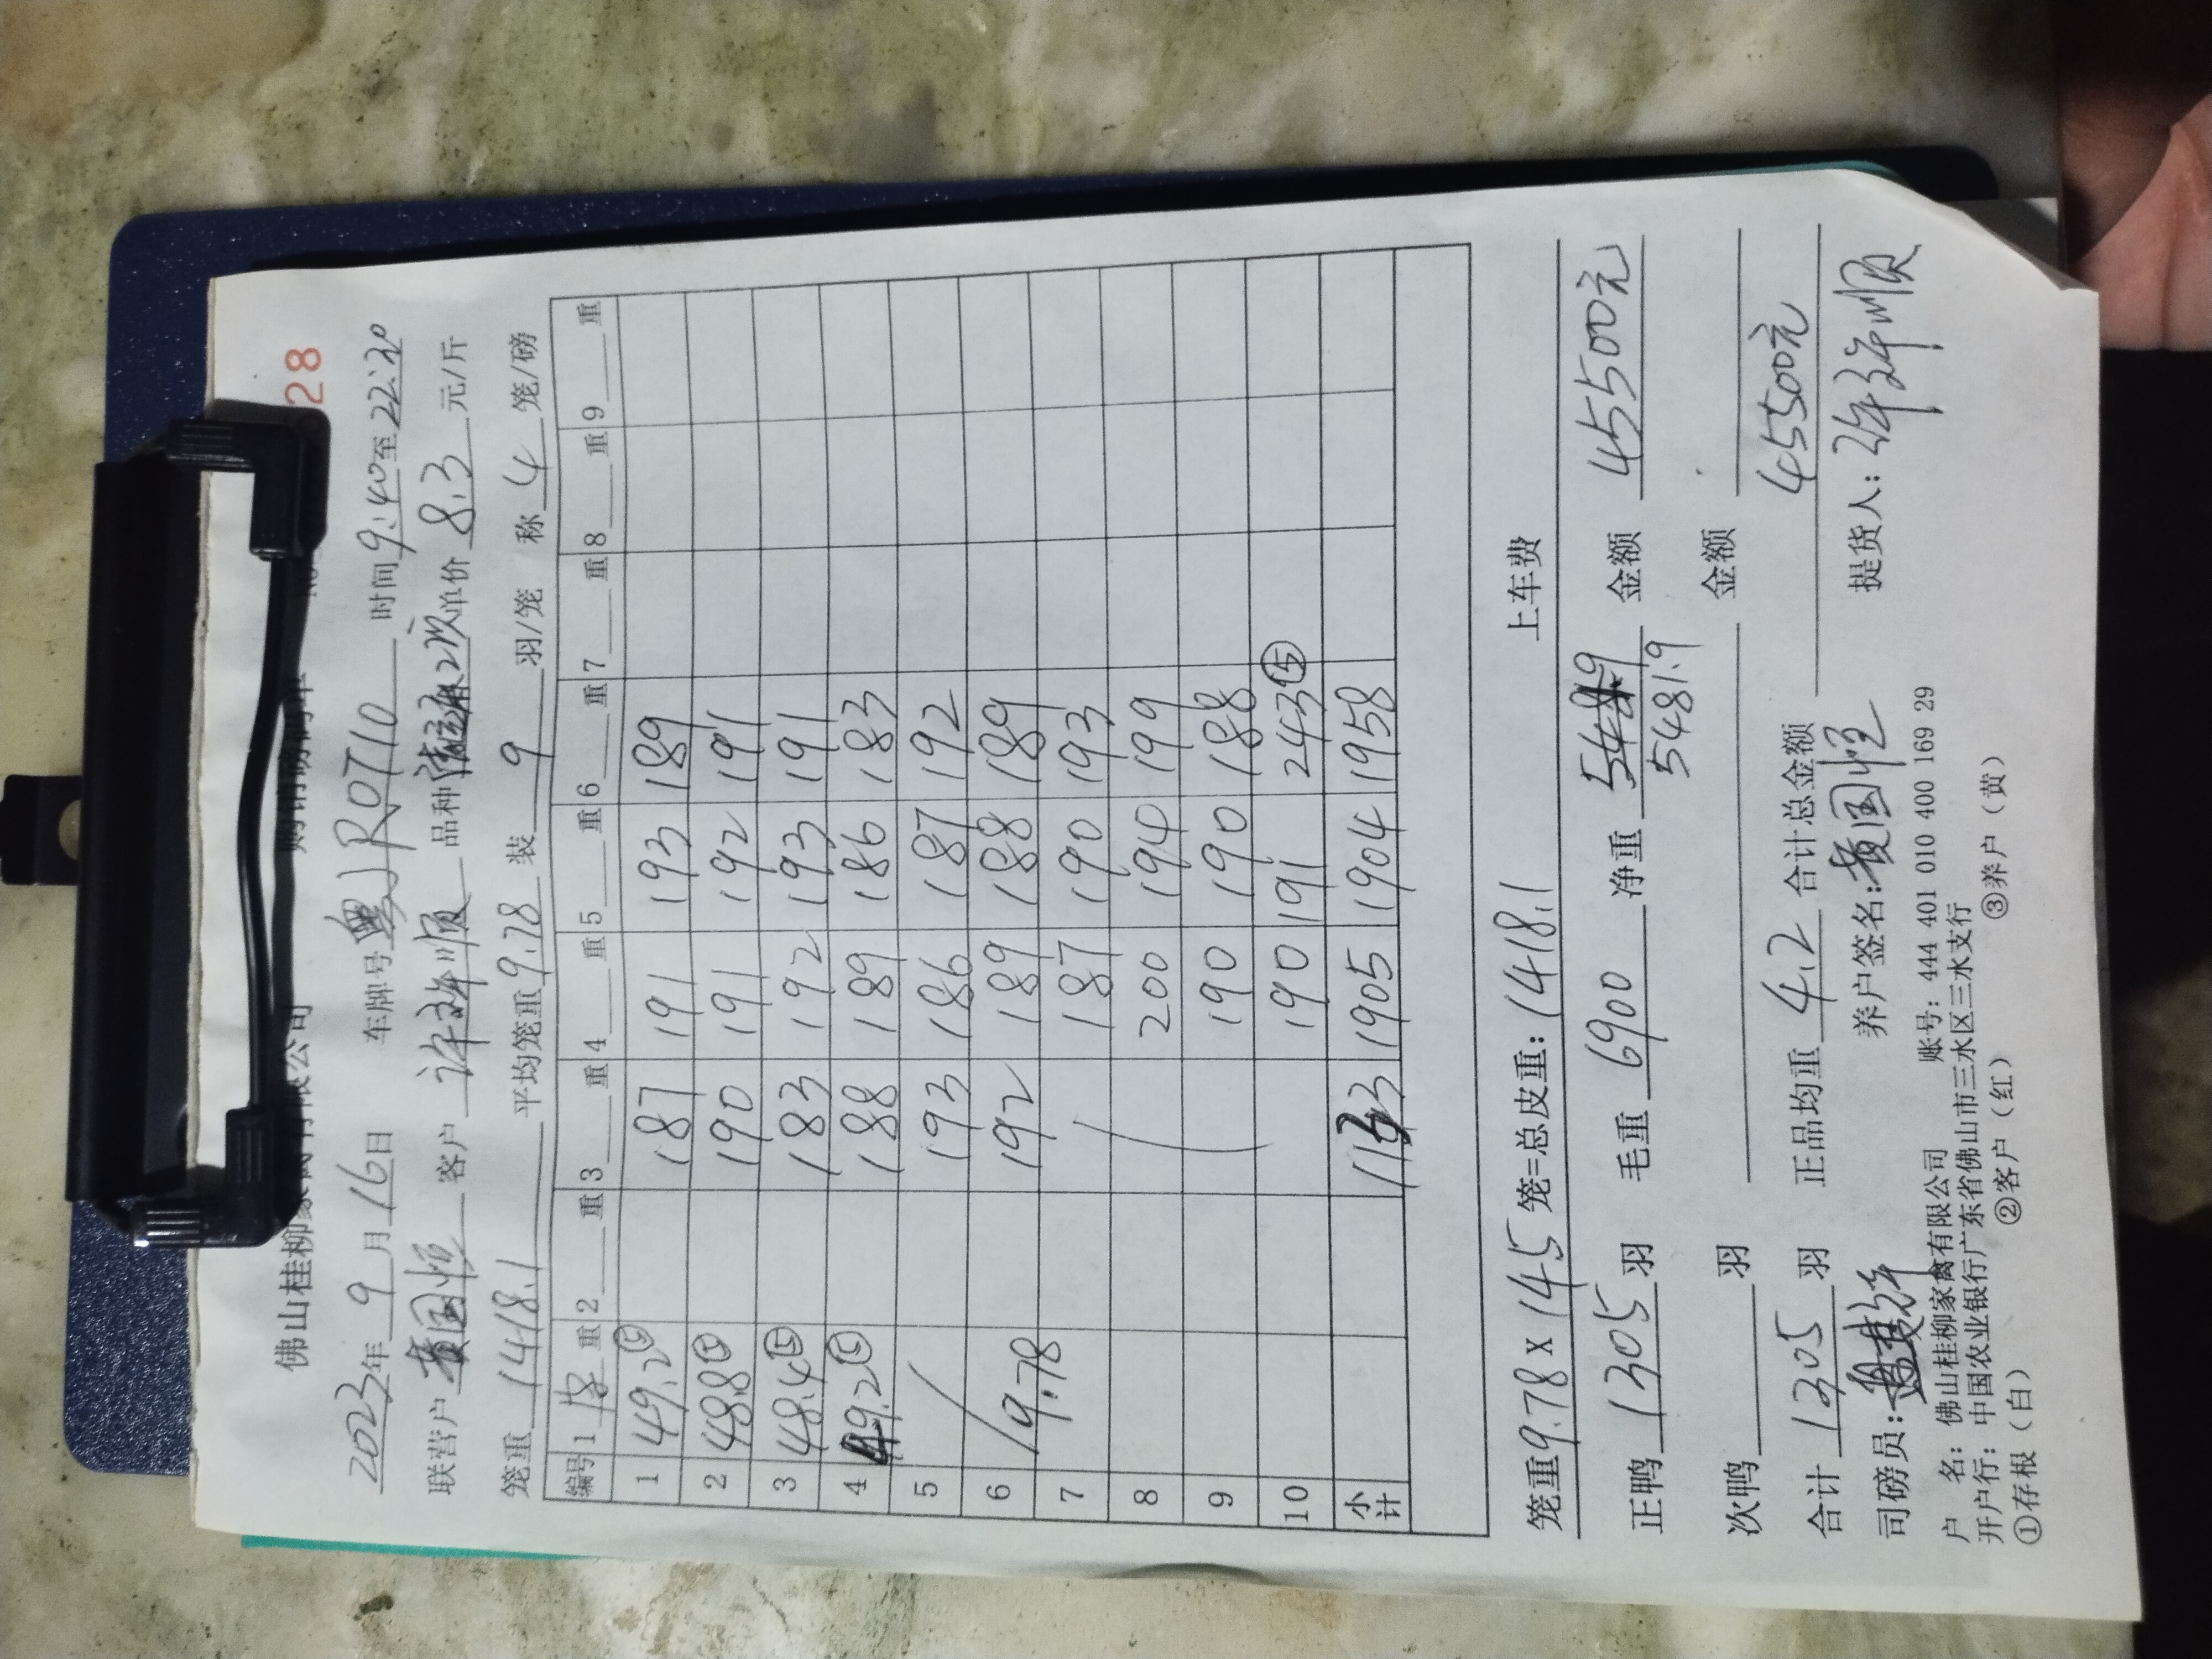 佛山桂柳家禽有限公司 购销磅码单
28
2023年9月16日 车牌号粤JR0T10 时间9:40至22:20
联营户黄国恒 客户许祥顺 品种 单价8.3元/斤
笼重1418.1 平均笼重9.78装9羽/笼 称4笼/磅
编号 1 重 2 重 3 重 4 重 5 重 6 重 7 重 8 重 9 重
1 49.2⑤ 187 191 193 189
2 48.8⑤ 190 191 192 191
3 48.4⑤ 183 192 193 191
4 49.2⑤ 188 189 186 183
5 193 186 187 192
6 9.78 192 189 188 189
7 187 190 193
8 200 194 199
9 190 190 188
10 190 191 243⑤
小计 1133 1905 1904 1958
笼重9.78x145笼=总皮重:1418.1 上车费
正鸭1305羽 毛重6900净重5481.9 金额45500元
次鸭 羽 金额
合计1305羽 正品均重4.2合计总金额45500元
司磅员: 养户签名:黄国恒 提货人:许祥顺
户 名: 佛山桂柳家禽有限公司 账号: 444 401 010 400 169 29
开户行: 中国农业银行广东省佛山市三水区三水支行
①存根(白) ②客户(红) ③养户(黄)